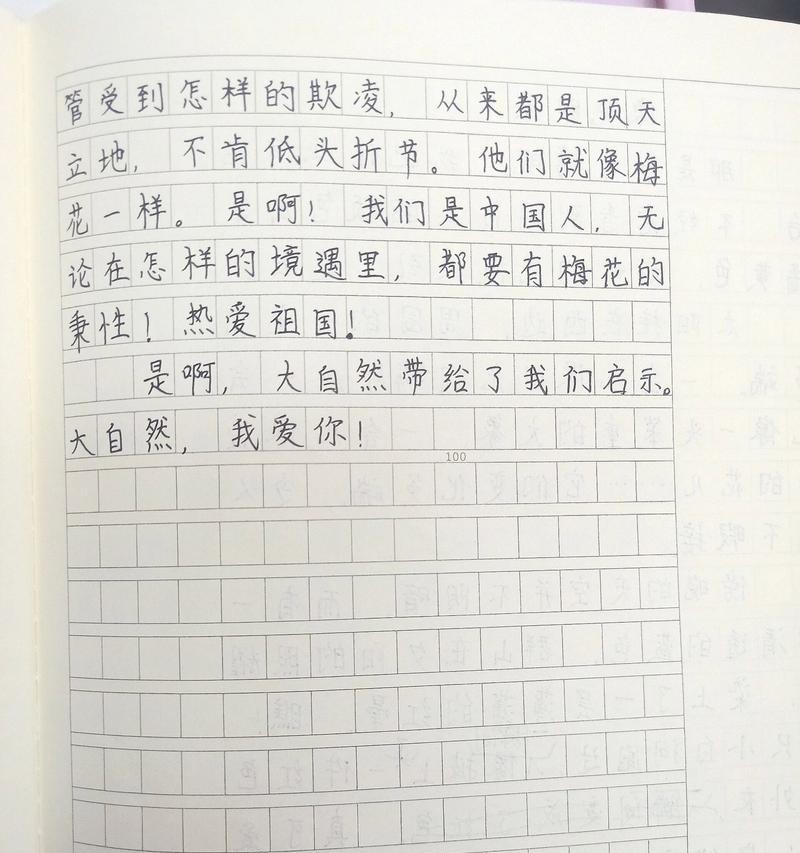 管受到怎样的欺凌，从来都是顶天
立地，不肯低头折节。他们就像梅
花一样。是啊！我们是中国人，无
论在怎样的境遇里，都要有梅花的
秉性！热爱祖国！
是啊，大自然带给了我们启示。
大自然，我爱你！
100